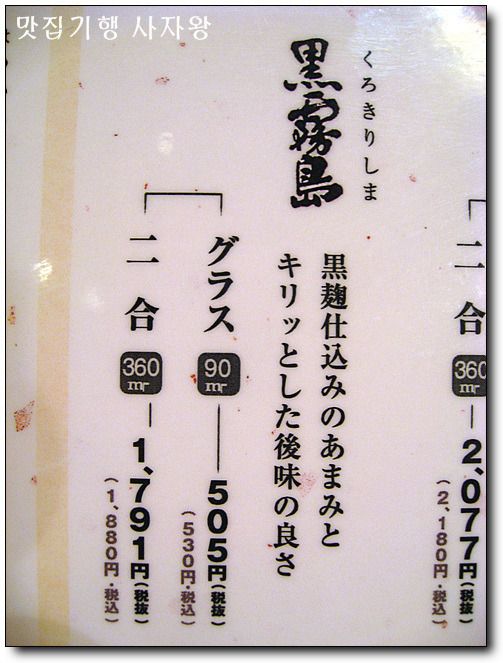 맛집기행 사자왕
くろきりしま
黒霧島
黒麹仕込みのあまみと
キリッとした後味の良さ
グラス
90
ml
505円(税抜)
(530円・税込)
二合
360
ml
1,791円(税抜)
(1,880円・税込)
二合
360
2,077円(税抜)
(2,180円・税込)